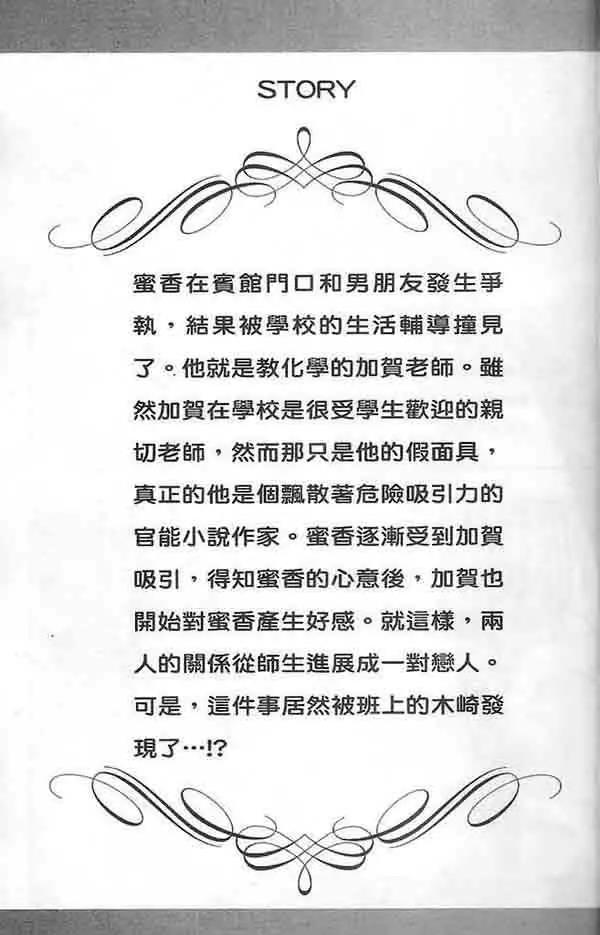 STORY
蜜香在賓館門口和男朋友發生爭
執，結果被學校的生活輔導撞見
了。他就是教化學的加賀老師。雖
然加賀在學校是很受學生歡迎的親
切老師，然而那只是他的假面具，
真正的他是個飄散著危險吸引力的
官能小說作家。蜜香逐漸受到加賀
吸引，得知蜜香的心意後，加賀也
開始對蜜香產生好感。就這樣，兩
人的關係從師生進展成一對戀人。
可是，這件事居然被班上的木崎發
現了…!?